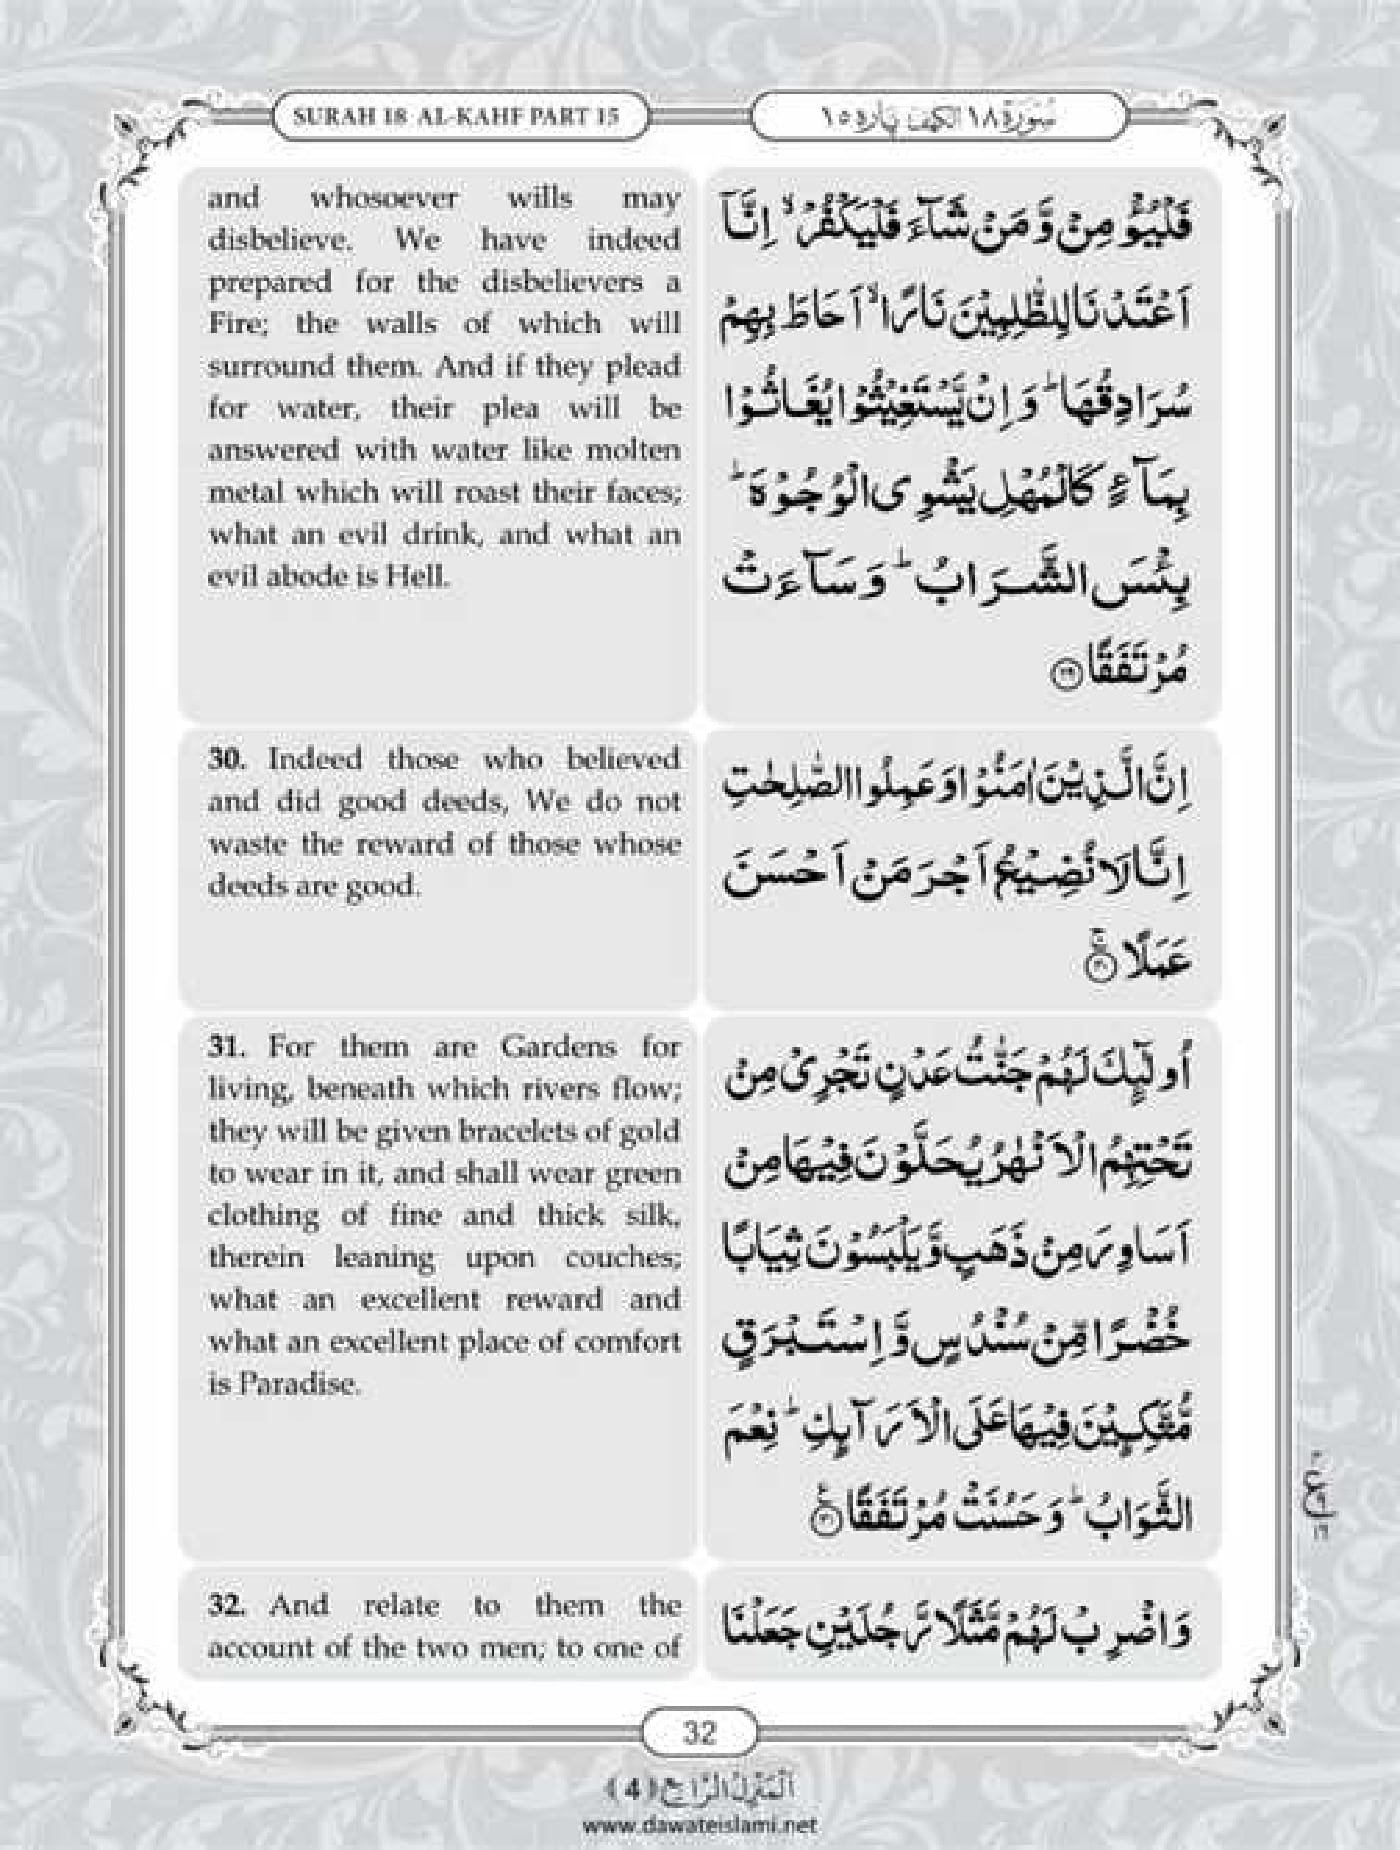 SURAH 18 AL-KAHF PART 15
سُوْرَة ١٨ الكهف پاره ١٥
and whosoever wills may
disbelieve. We have indeed
prepared for the disbelievers a
Fire; the walls of which will
surround them. And if they plead
for water, their plea will be
answered with water like molten
metal which will roast their faces;
what an evil drink, and what an
evil abode is Hell.
فَلْیُؤْمِنْ وَّ مَنْ شَآءَ فَلْیَكْفُرْ ۙ اِنَّاۤ
اَعْتَدْنَا لِلظّٰلِمِیْنَ نَارًا ۙ اَحَاطَ بِهِمْ
سُرَادِقُهَا ؕ وَ اِنْ یَّسْتَغِیْثُوْا یُغَاثُوْا
بِمَآءٍ كَالْمُهْلِ یَشْوِی الْوُجُوْهَ ؕ
بِئْسَ الشَّرَابُ ؕ وَ سَآءَتْ
مُرْتَفَقًا ﴿۲۹﴾
30. Indeed those who believed
and did good deeds, We do not
waste the reward of those whose
deeds are good.
اِنَّ الَّذِیْنَ اٰمَنُوْا وَ عَمِلُوا الصّٰلِحٰتِ
اِنَّا لَا نُضِیْعُ اَجْرَ مَنْ اَحْسَنَ
عَمَلًا ﴿۳۰﴾
31. For them are Gardens for
living, beneath which rivers flow;
they will be given bracelets of gold
to wear in it, and shall wear green
clothing of fine and thick silk,
therein leaning upon couches;
what an excellent reward and
what an excellent place of comfort
is Paradise.
اُولٰٓىِٕكَ لَهُمْ جَنّٰتُ عَدْنٍ تَجْرِیْ مِنْ
تَحْتِهِمُ الْاَنْهٰرُ یُحَلَّوْنَ فِیْهَا مِنْ
اَسَاوِرَ مِنْ ذَهَبٍ وَّ یَلْبَسُوْنَ ثِیَابًا
خُضْرًا مِّنْ سُنْدُسٍ وَّ اِسْتَبْرَقٍ
مُّتَّكِـِٕیْنَ فِیْهَا عَلَى الْاَرَآىِٕكِ ؕ نِعْمَ
الثَّوَابُ ؕ وَ حَسُنَتْ مُرْتَفَقًا ﴿۳۱﴾
32. And relate to them the
account of the two men; to one of
وَ اضْرِبْ لَهُمْ مَّثَلًا رَّجُلَیْنِ جَعَلْنَا
32
اَلْمَنْزِلُ الرَّابِع (4)
www.dawateislami.net